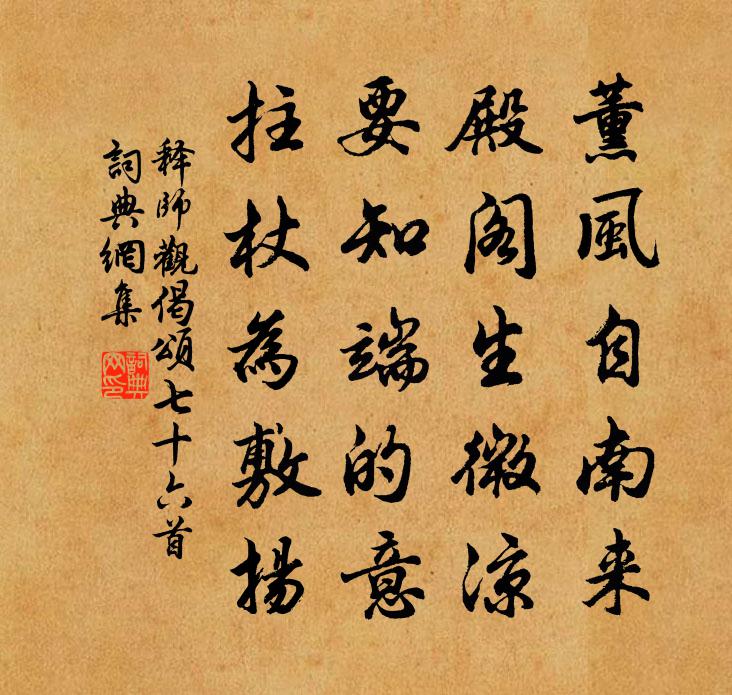 薰風自南来
殿阁生微凉
要知端的意
拄杖為敷揚
释師觀偈頌七十六首
詞典網集
詞典网印